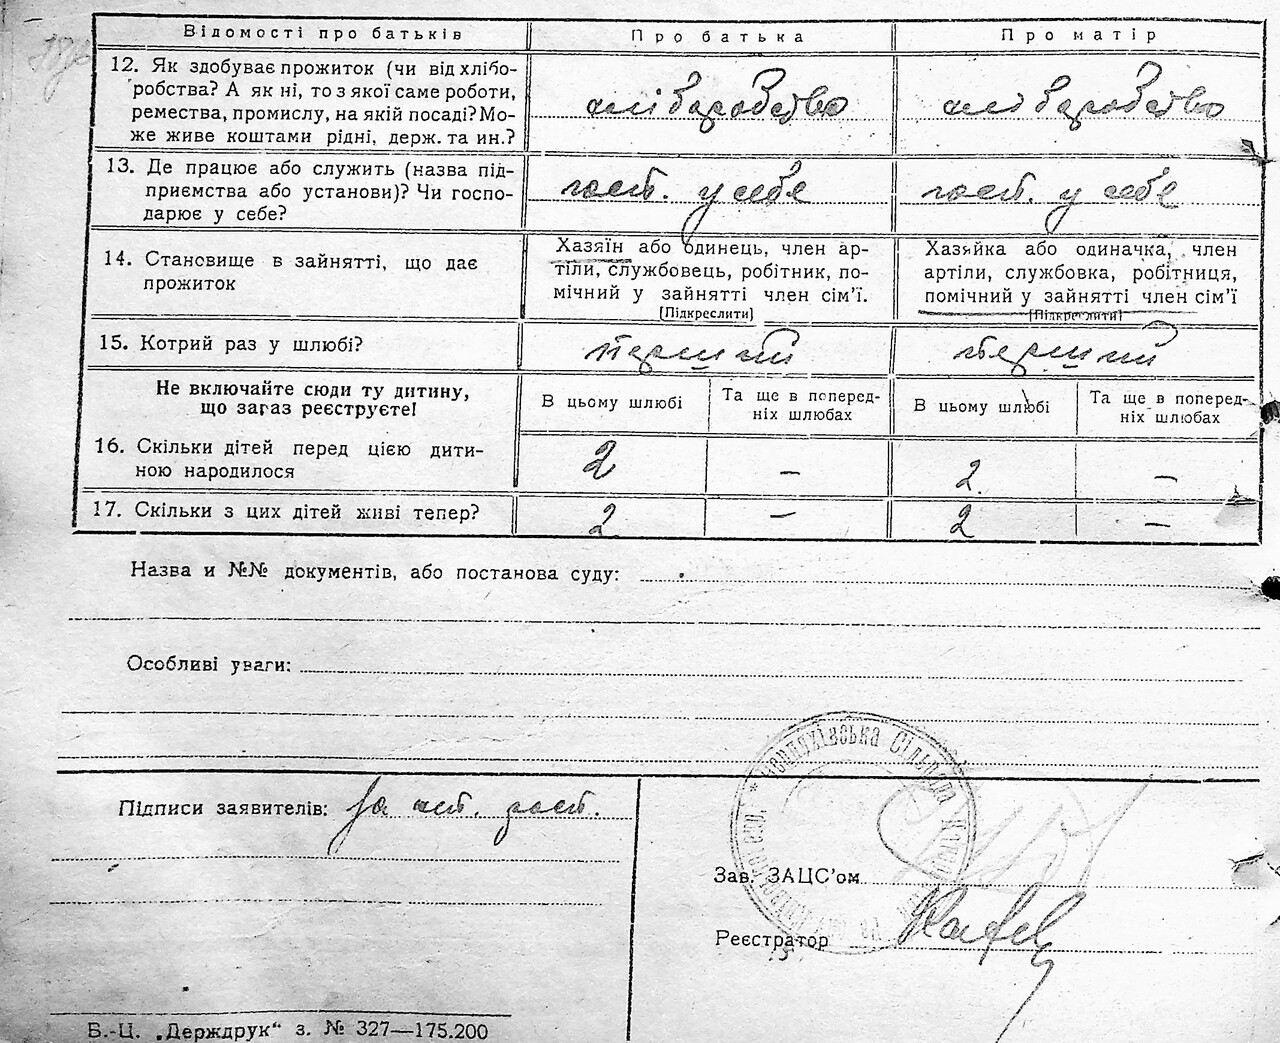 Відомості про батьків Про батька Про матір
12. Як здобуває прожиток (чи від хлібо-
робства? А як ні, то з якої саме роботи,
ремества, промислу, на якій посаді? Мо-
же живе коштами рідні, держ. та ин.?
хліборобство хліборобство
13. Де працює або служить (назва під-
приємства або установи)? Чи госпо-
дарює у себе?
госп. у себе госп. у себе
14. Становище в зайнятті, що дає
прожиток
Хазяїн або одинець, член ар-
тіли, службовець, робітник, по-
мічний у зайнятті член сім’ї.
[Підкреслити]
Хазяйка або одиначка, член
артіли, службовка, робітниця,
помічний у зайнятті член сім’ї
[Підкреслити]
15. Котрий раз у шлюбі? перший перший
Не включайте сюди ту дитину,
що зараз реєструєте!
В цьому шлюбі
Та ще в поперед-
ніх шлюбах
В цьому шлюбі
Та ще в поперед-
ніх шлюбах
16. Скільки дітей перед цією дити-
ною народилося
2 – 2 –
17. Скільки з цих дітей живі тепер? 2 – 2 –
Назва и №№ документів, або постанова суду:
Особливі уваги:
Підписи заявителів:
Зав. ЗАЦС’ом
Реєстратор
Б.-Ц. „Держдрук“ з. № 327—175.200